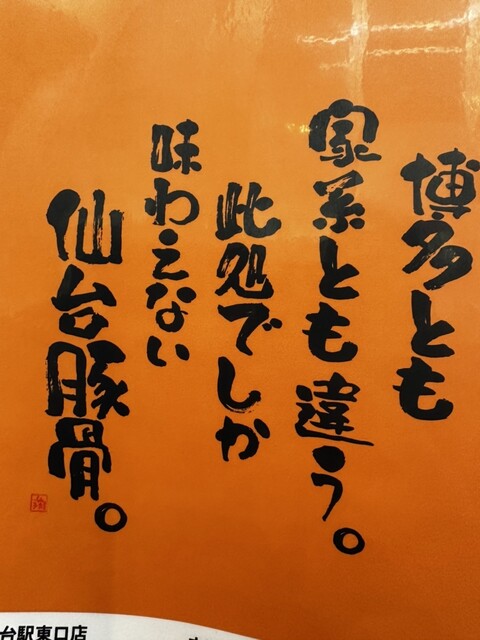 博多とも
家系とも違う。
此処でしか
味わえない
仙台豚骨。
台駅東口店